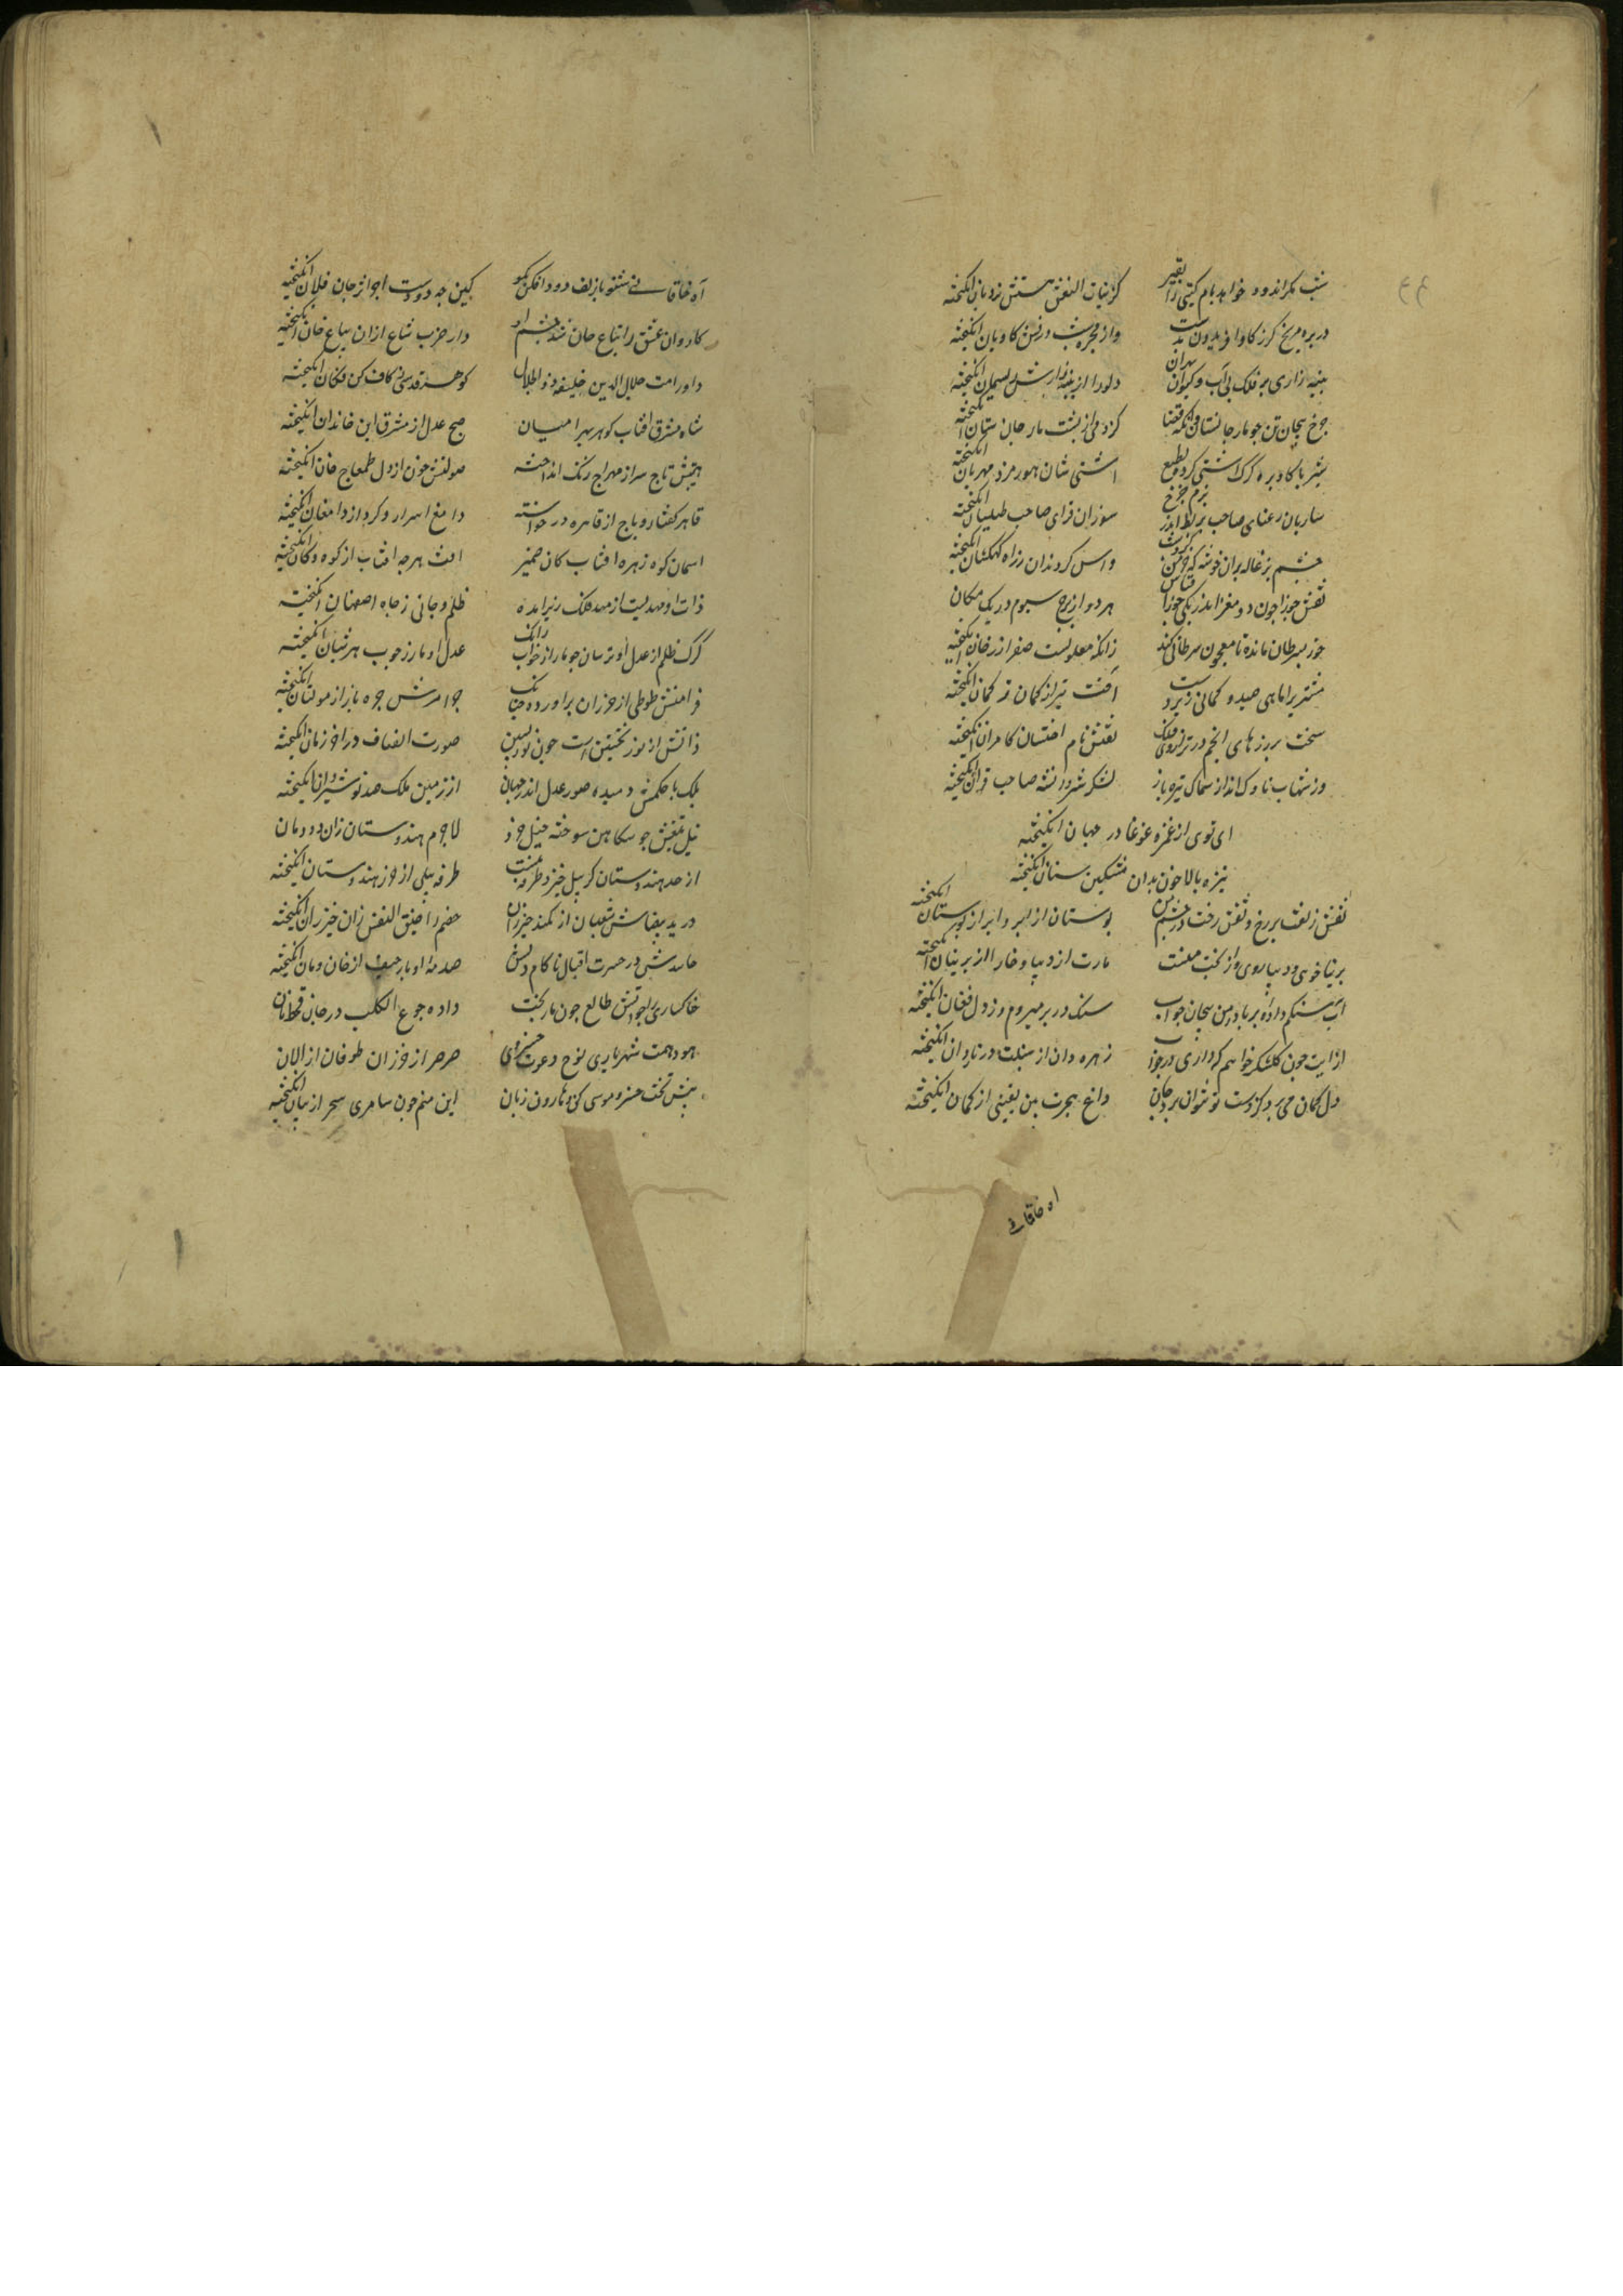 شب مکر اندود خواهد بام کیتی را بقیر کز بنات النعش هستش نردبان انکیخته
در بره مریخ کرز کاو افریدون بدست وز مجره شب درفش کاویان انکیخته
پنبه زاری بر فلک بی اب و کیوان
چرخ پیچان تن چو مار جانستان وانکه قضا کژدمی از پشت مار جان ستان انکیخته
شیر با کاو بره کرک اشتی کرده بطبع اشتی شان هورمزد مهربان انکیخته
ساربان رعنای صاحب بربط اندر بزم چرخ سوزن فرای صاحب طیلسان انکیخته
چشم بزغاله بران خوشه که خرمن کرده شب داس کردندان ز راه کهکشان انکیخته
نقش جوزا چون دو مغز اندر یکی جوز از قیاس هر دو از برج سیوم در یک مکان
خوز سرطان مانده تا معجون سرطانی کند زانکه معلولست صفرا از رخان انکیخته
مشتریرا ماهی صید و کمانی زیر دست افت تیر از کمان ترکمان انکیخته
سخت برزهای انجم در ترازوی فلک نقش نام اختسان کامران انکیخته
وز شهاب ناوک انداز سماک نیزه باز لشکر شروانشه صاحب قران انکیخته
ای توی از غمزه غوغا در جهان انکیخته
نیزه بالا خون بدان مشکین سنان انکیخته
نقش زلفت بر رخ و نقش رخت در چشم من بوستان از ابر و ابر از بوستان انکیخته
پرنیا خوی و دیبا روی واز کفت منست مارت از دیبا و خار از پرنیان انکیخته
اب سنکم داده بر باد من بیجان جواب سنک در بر میروم وز دل فغان انکیخته
از لبت چون کلشکر خواهم که داری در جواب زهره دان از سنبلت در ناردان انکیخته
دل کمان می برد کز دست تو نتوان برد جان داغ هجرت بن یقینی از کمان انکیخته
اه خاقانی
آه خاقانی شنو با زلف دود افکن بکو کین چه دودست اخر از جان فلان انکیخته
کاروان عشق را بیاع جان شد چشم او دار ضرب شاع ازان بیاع خان انکیخته
داور امت جلال الدین خلیفه ذو الجلال کوهر قدسی ز کاف کن فکان انکیخته
شاه مشرق افتاب کوهر بهرامیان صبح عدل از مشرق این خاندان انکیخته
هیبتش تاج سر از مهراج زنک انداخته صولتش خون از دل طمغاج خان انکیخته
قاهر کفتار و باج از قاهره در خواسته دامغ اسرار و کرد از دامغان انکیخته
اسمان کوه زهره افتاب کان ضمیر افت هر چه افتاب از کوه و کان انکیخته
ذات او مهدیست از مهد فلک زیر امده ظلم دجالی ز چاه اصفهان انکیخته
کرک ظلم از عدل او ترسان چو مار از خوب رانک عدل او مار ز چوب هر شبان انکیخته
فر امنش طوطی از خزران براورده چنانک جود مرش جره باز از مولتان انکیخته
ذاتش از نوز نخستین است چون نور پسین صورت انصاف در اخر زمان انکیخته
بلک با حکمش دمیده صور عدل اندر جهان از زمین ملک صد نوشیروان انکیخته
نیل تیغش چو سکاهن سوخته خیل خزر لاجرم هندوستان زان دودمان
از حد هندوستان کر پیل خیزد طرفه نیست طرفه پیلی از خزر هندوستان انکیخته
در ید بیضاش ثعبان از کمند خیزران خصم را ضیق النفس زان خیزران انکیخته
حاسدش در حسرت اقبال ناکام دلش صدمه ادبار حیف از خان و مان انکیخته
خاکساری را چو اتش طالع چون مار بخت داده جوع الکلب در جان قحط نان
هود همت شهریاری نوح دعوت خسروی صرصر از خزران طوفان از الان
پیش تخت خسرو موسی کف و هارون زبان این منم چون سامری سحر از بیان انکیخته